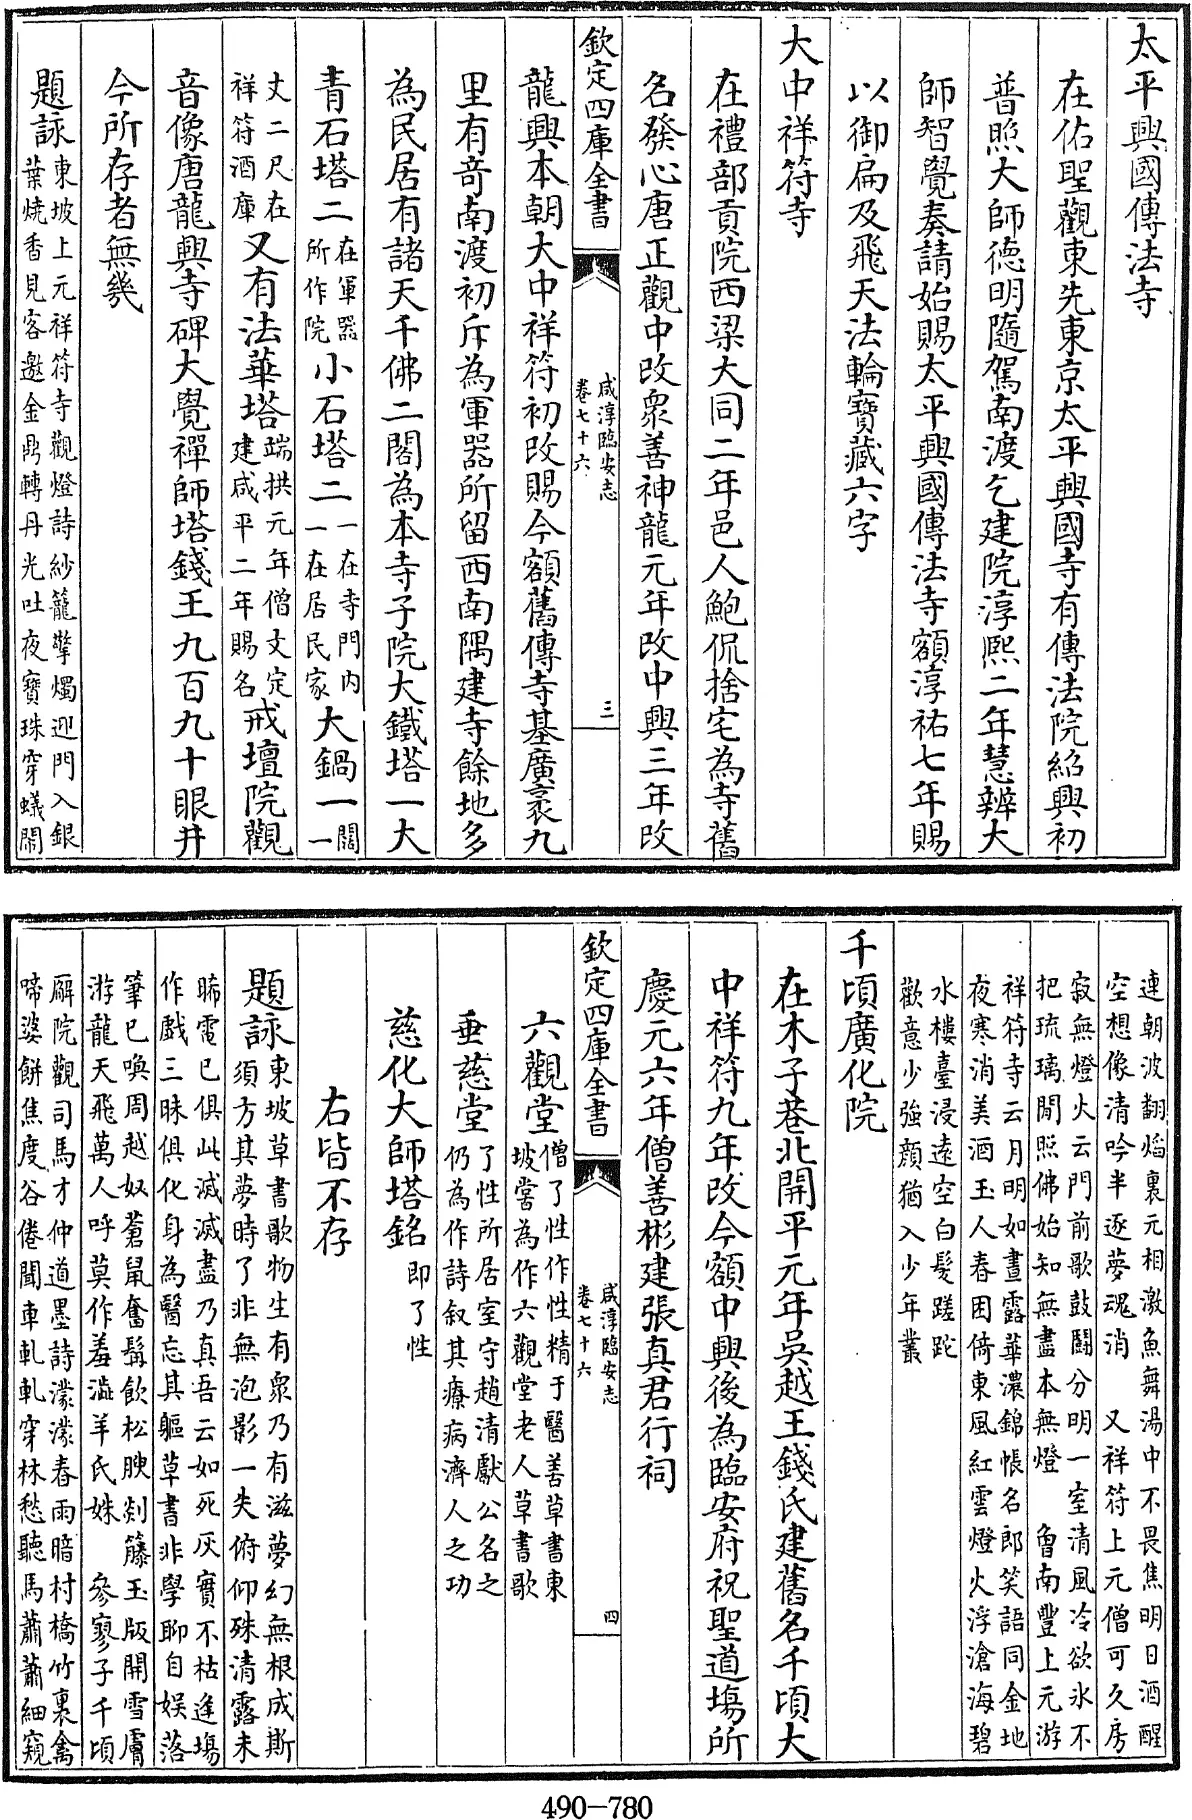 太平興國傳法寺
在佑聖觀東先東京太平興國寺有傳法院紹興初
普照大師德明隨駕南渡乞建院淳熙二年慧辨大
師智覺奏請始賜太平興國傳法寺額淳祐七年賜
以御扁及飛天法輪寶藏六字
大中祥符寺
在禮部貢院西梁大同二年邑人鮑侃捨宅為寺舊
名發心唐正觀中改衆善神龍元年改中興三年改
欽定四庫全書
咸淳臨安志
卷七十六
三
龍興本朝大中祥符初改賜今額舊傳寺基廣袤九
里有竒南渡初斥為軍器所留西南隅建寺餘地多
為民居有諸天千佛二閣為本寺子院大鐵塔一大
青石塔二在軍器所作院小石塔二一在寺門内一在居民家大鍋一闊一
丈二尺在祥符酒庫又有法華塔端拱元年僧文定建咸平二年賜名戒壇院觀
音像唐龍興寺碑大覺禪師塔錢王九百九十眼井
今所存者無幾
題詠東坡上元祥符寺觀燈詩紗籠擎燭迎門入銀
葉燒香見客邀金鼎轉丹光吐夜寶珠穿蟻閙
連朝波翻焰裏元相激魚舞湯中不畏焦明日酒醒
空想像清吟半逐夢魂消 又祥符上元僧可久房
寂無燈火云門前歌鼓鬭分明一室清風冷欲氷不
把琉璃閒照佛始知無盡本無燈 魯南豐上元游
祥符寺云月明如晝露華濃錦帳名郎笑語同金地
夜寒消美酒玉人春困倚東風紅雲燈火浮滄海碧
水樓臺浸遠空白髮蹉跎
歡意少強顔猶入少年叢
千頃廣化院
在木子巷北開平元年吳越王錢氏建舊名千頃大
中祥符九年改今額中興後為臨安府祝聖道塲所
慶元六年僧善彬建張真君行祠
欽定四庫全書
咸淳臨安志
卷七十六
四
六觀堂僧了性作性精于醫善草書東坡嘗為作六觀堂老人草書歌
垂慈堂了性所居室守趙清獻公名之仍為作詩叙其療病濟人之功
慈化大師塔銘即了性
右皆不存
題詠東坡草書歌物生有衆乃有滋夢幻無根成斯
須方其夢時了非無泡影一失俯仰殊清露未
晞電已俱此滅滅盡乃真吾云如死灰實不枯逢塲
作戲三昧俱化身為醫忘其軀草書非學聊自娱落
筆已喚周越奴蒼鼠奮髯飲松腴剡籐玉版開雪膚
游龍天飛萬人呼莫作羞澁羊氏姝 參寥子千頃
廨院觀司馬才仲道墨詩濛濛春雨暗村橋竹裏禽
啼婆餅焦度谷倦聞車軋軋穿林愁聽馬蕭蕭細窺
490-780